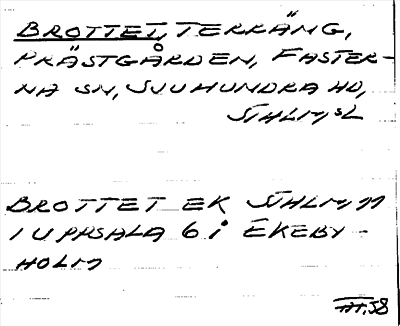 BROTTET, TERRÄNG,
PRÄSTGÅRDEN, FASTER-
NA SN, SJUHUNDRA HD,
STHLMSL
BROTTET EK STHLM 77
I UPPSALA 6 i EKEBY-
HOLM
58